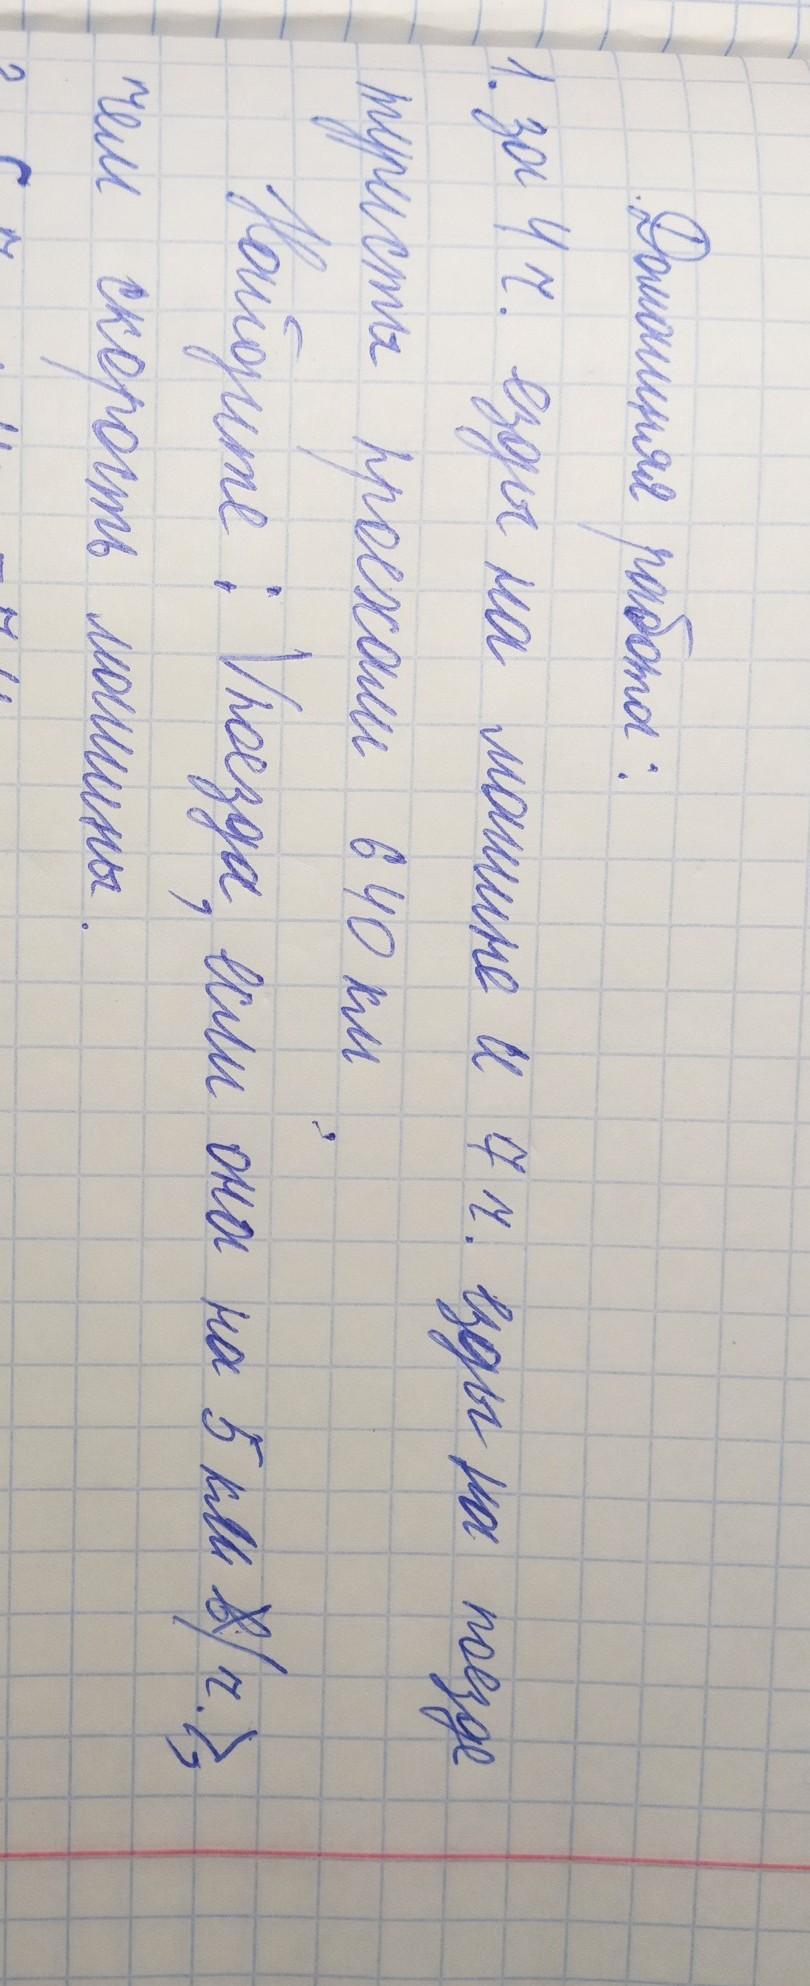 Домашняя работа:
1. за 4 ч. езды на машине и 7 ч. езды на поезде
туристы проехали 640 км
Найдите: V поезда, если она на 5 км/ч. >,
чем скорость машины.